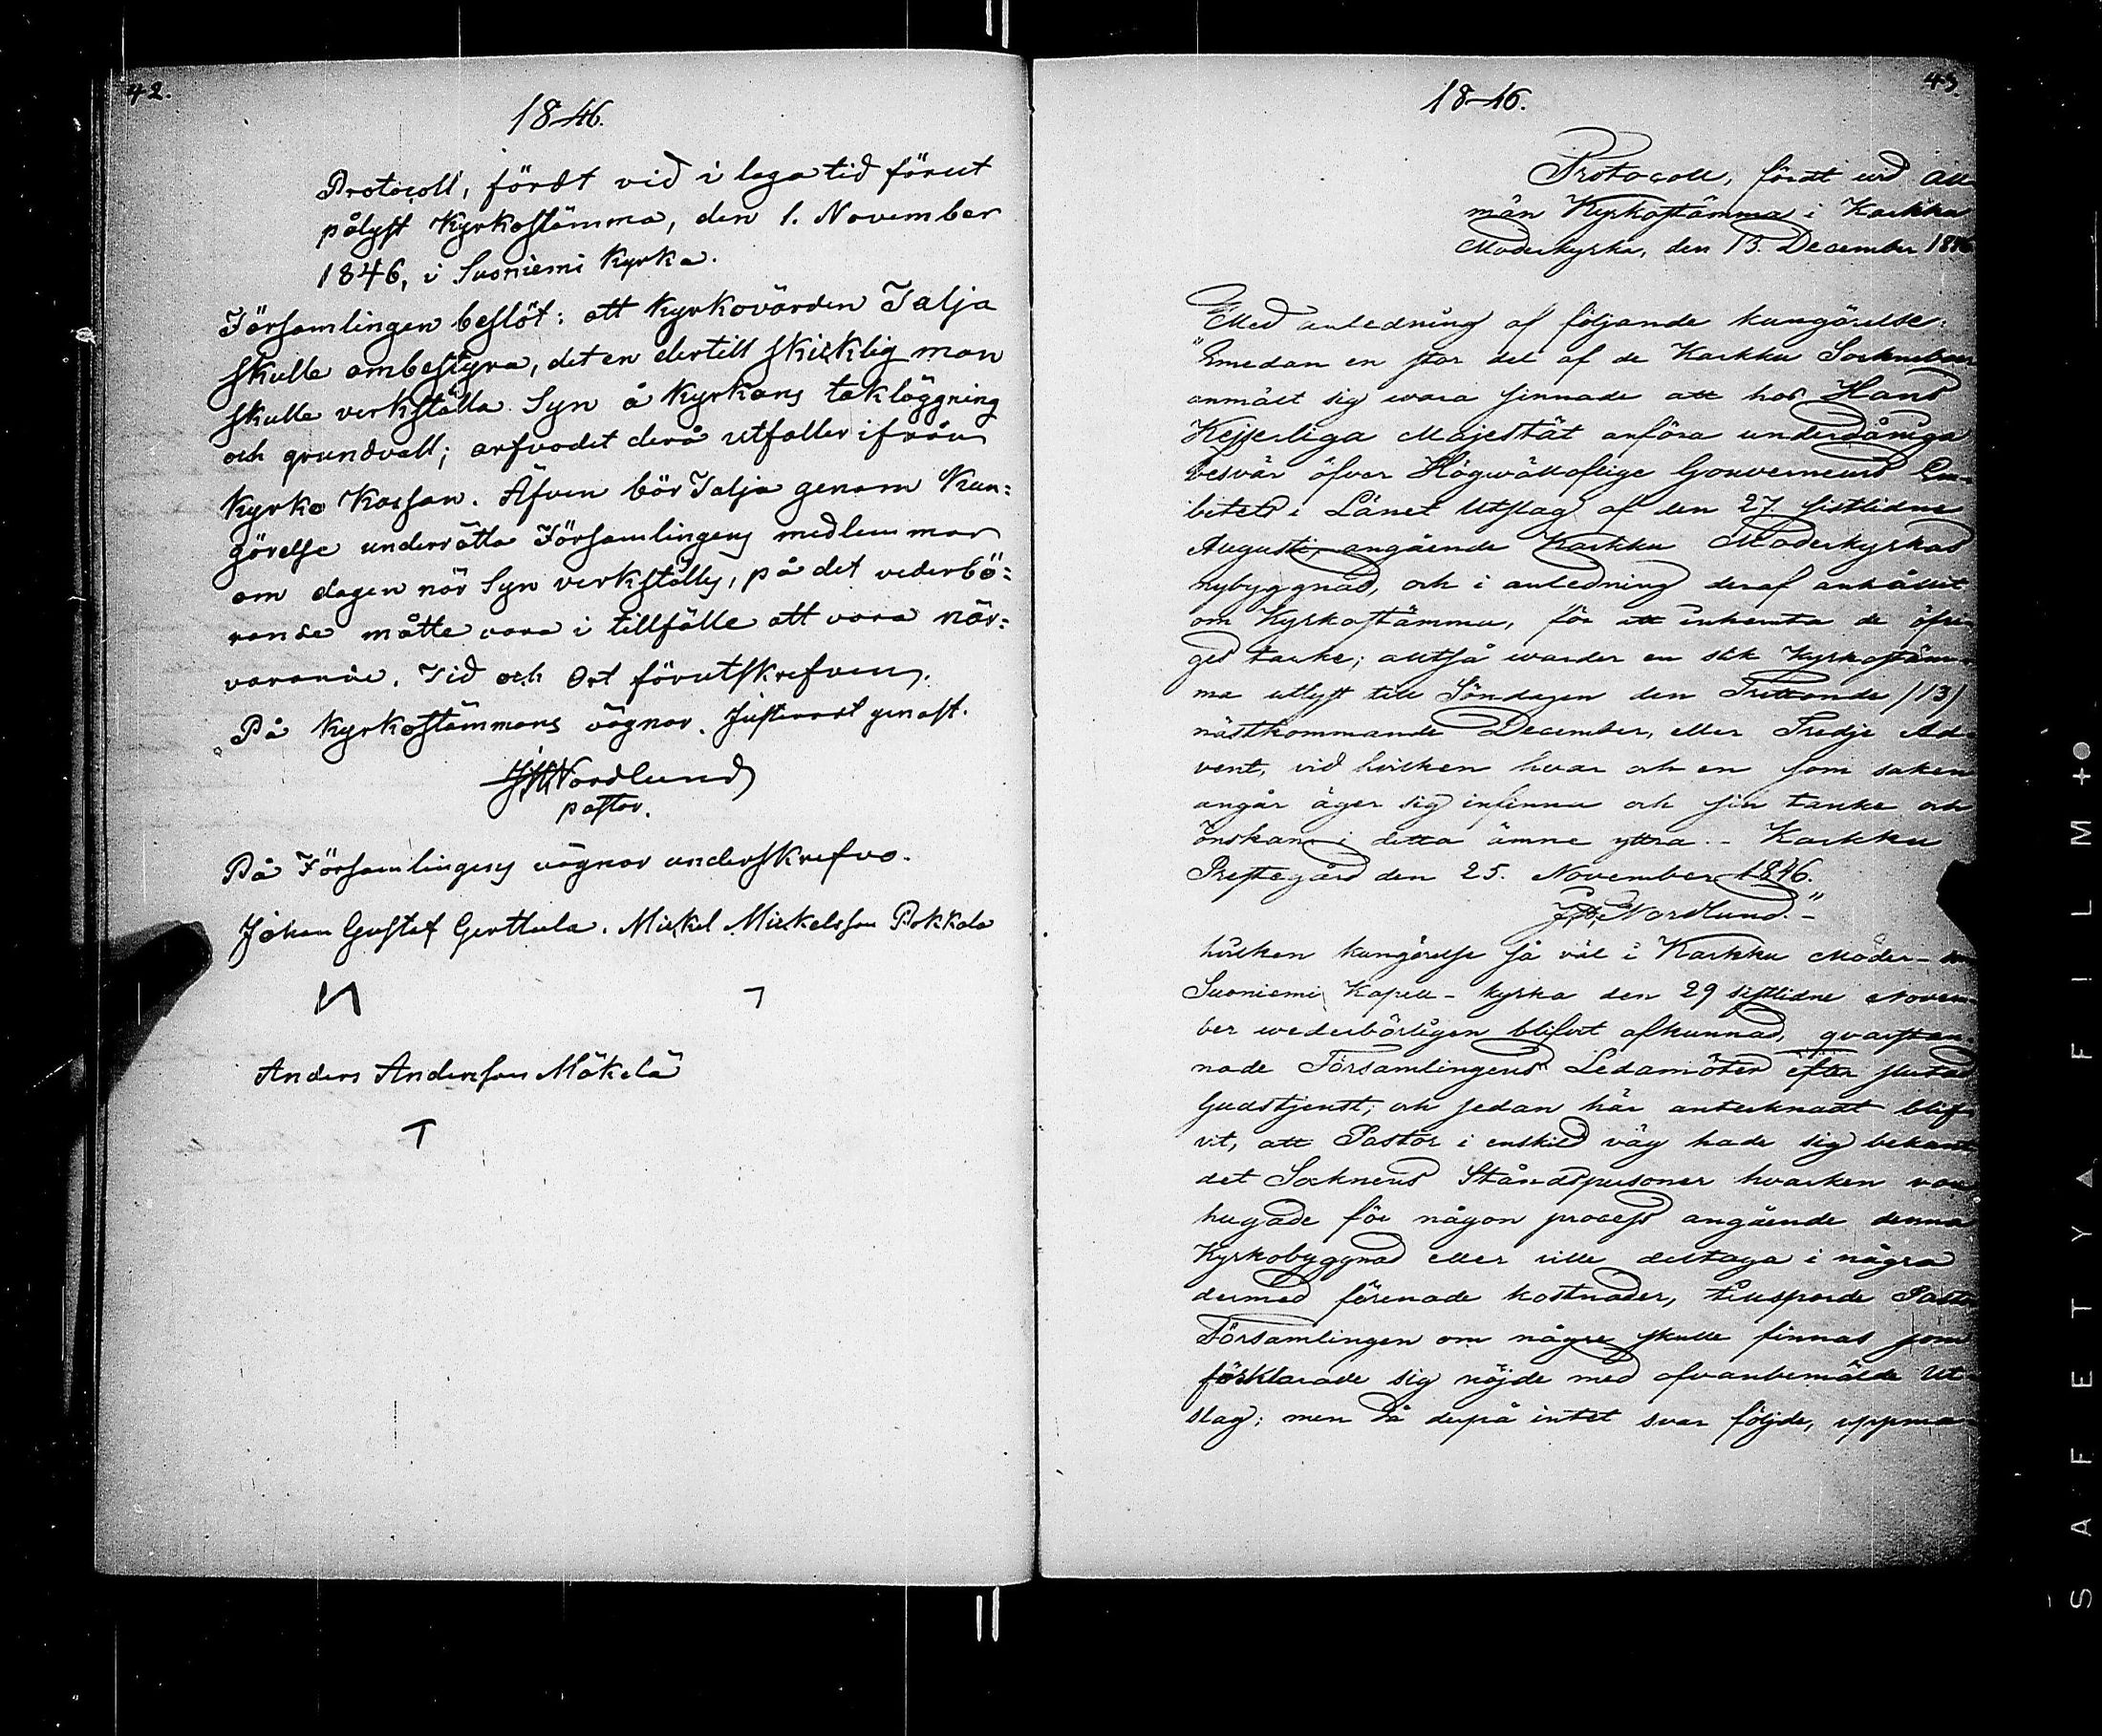 42.
1846.
Protocoll, fördt vid i laga tid förut
pålyst Kyrkostämma, den 1. November
1846, i Suoniemi Kyrka.
Församlingen beslöt: att Kyrkovärden Talja
skulle ombestyra, det en dertill skicklig man
skulle verkställa Syn å Kyrkans takläggning
och grundvall; arfvodet derå utfaller ifrån
Kyrko Kassan. Äfven bör Talja genom Kun:
görelse underrätta Församlingens medlemmar
om dagen när Syn verkställes, på det vederbö:
rande måtte vara i tillfälle att vara när:
varande. Tid och Ort förutskrefven.
På Kyrkostämmans vägnar. Justeradt genast.
Nordlund
pastor.
På Församlingens vägnar underskrefvo.
Johan Gustaf Gerttula. Mickel Mickelsson Pokkala
Anders Andersson Mäkelä
43
1846.
Protocoll, fördt vid all
män Kyrkostämma i Karkku
Moderkyrka, den 13. December 1846
Med anledning af följande kungörelse:
"Emedan en stor del af de Karkku Sockneboer
anmält sig wara sinnade att hos Hans
Kejserliga Majestät anföra underdåniga
besvär öfver Högwälloflige Gouverneurs Em-
betets i Länet Utslag af den 27 sistlidne
Augusti, angående Karkku Moderkyrkas
nybyggnad, och i anledning deraf anhållit
om Kyrkostämma, för att inhemta de öfri-
ges tanke; alltså warder en slik Kyrkostäm-
ma utlyst till Söndagen den Trettonde /13/
nästkommande December, eller Tredje Ad-
vent, vid hvilken hvar och en som saken
angår äger sig infinna och sin tanke och
önskan i detta ämne yttra. - Karkku
Prestegård den 25. November 1846.
Nordlund." -
hvilken kungörelse så väl i Karkku Moder-
Suoniemi Kapell-kyrka den 29 sistlidne Novem-
ber wederbörligen blifvit afkunnad, qvarstan-
nade Församlingens Ledamöter efter slutad
Gudstjenst; och sedan här antecknadt blif-
vit, att Pastor i enskild väg hade sig bekant
det Socknens Ståndspersoner hvarken voro
hugade för någon process angående denna
Kyrkobyggnad eller ville deltaga i några
dermed förenade kostnader, tillsporde Pastor
Församlingen om några skulle finnas som
förklarade sig nöjde med ofvanbemälde Ut-
slag; men då derpå intet svar följde, uppma-
SAFETY FILM